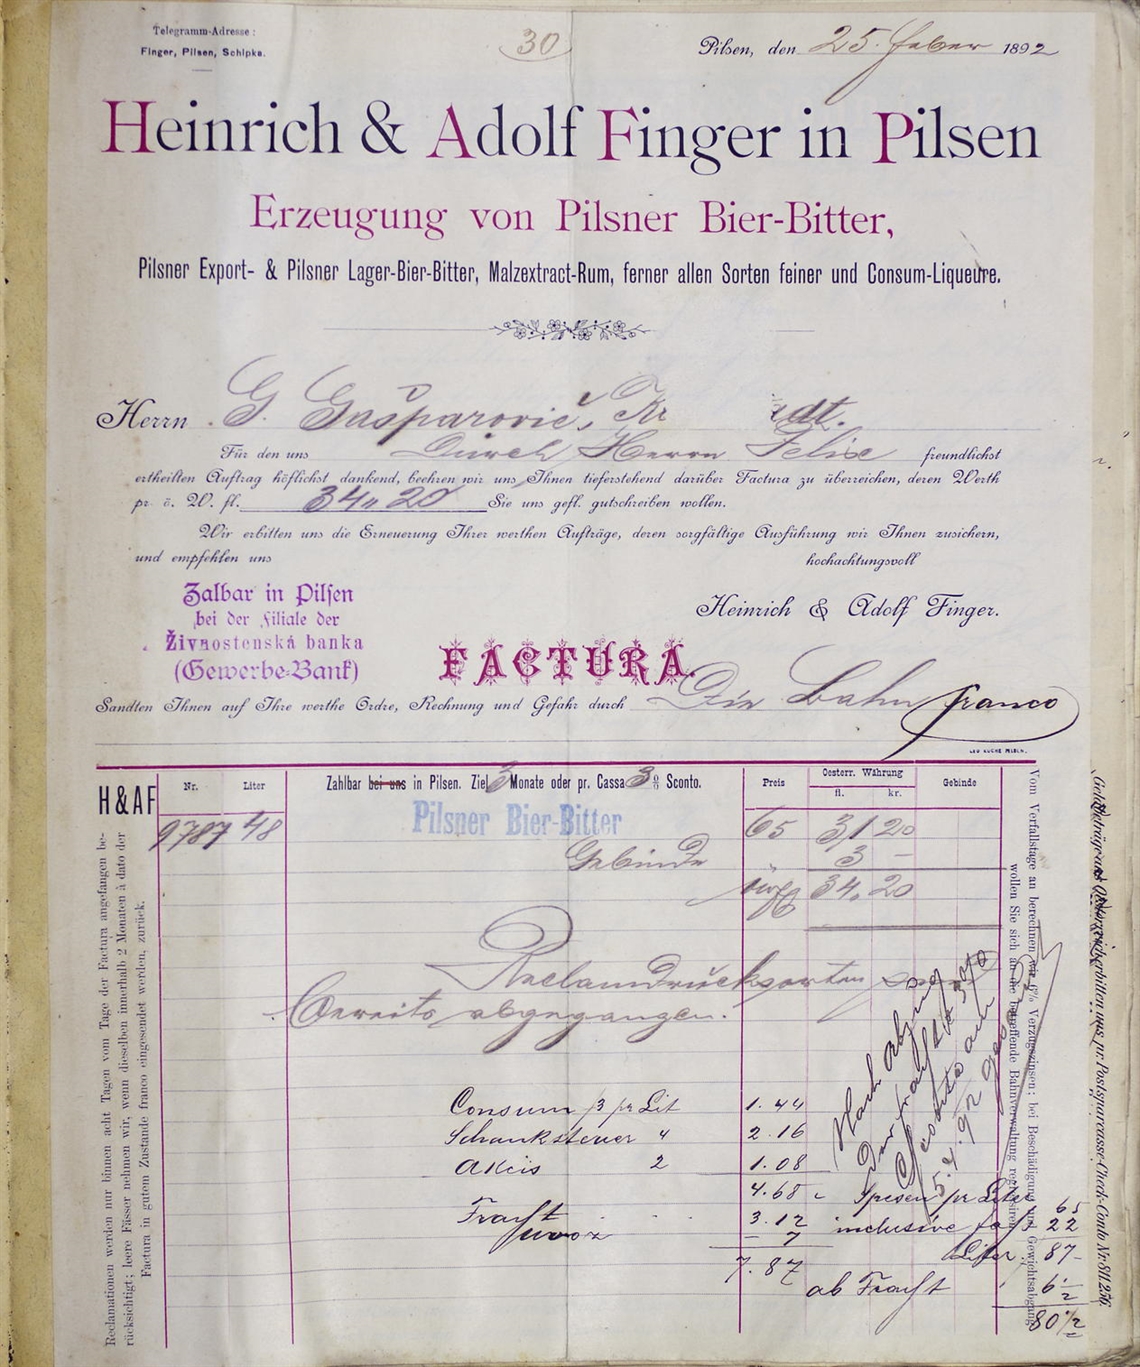 Telegramm-Adresse:
Finger, Pilsen, Schipka.
30
Pilsen, den 25. Feber 1892
Heinrich & Adolf Finger in Pilsen
Erzeugung von Pilsner Bier-Bitter,
Pilsner Export- & Pilsner Lager-Bier-Bitter, Malzextract-Rum, ferner allen Sorten feiner und Consum-Liqueure.
Herrn G. Gašparovič, Kr dt.
Für den uns Durch Herrn Felix freundlichst
ertheilten Auftrag höflichst dankend, beehren wir uns Ihnen tieferstehend darüber Factura zu überreichen, deren Werth
pr. ö. W. fl. 34„20 Sie uns gefl. gutschreiben wollen.
Wir erbitten uns die Erneuerung Ihrer werthen Aufträge, deren sorgfältige Ausführung wir Ihnen zusichern,
und empfehlen uns hochachtungsvoll
Heinrich & Adolf Finger.
Zalbar in Pilsen
bei der Filiale der
Živnostenská banka
(Gewerbe-Bank)
FACTURA.
Sandten Ihnen auf Ihre werthe Ordre, Rechnung und Gefahr durch Die Bahn franco
H & AF
Nr. Liter Zahlbar bei uns in Pilsen. Ziel 3 Monate oder pr. Cassa 3% Sconto. Preis Oesterr. Währung Gebinde
fl. kr.
9787 48 Pilsner Bier-Bitter 65 31 20
Gebinde 3 –
34. 20
Reclamdrucksorten
bereits abgegangen.
Consum 3 pr Lit 1.44
Schanksteuer 4 2.16
Akcis 2 1.08
4.68 Spesen pr Liter 65
Fracht 3.12 inclusive 22
7 Liter 87–
7.87
ab Fracht 6½
80½
Reclamationen werden nur binnen acht Tagen vom Tage der Factura angefangen be-
rücksichtigt; leere Fässer nehmen wir, wenn dieselben innerhalb 2 Monaten à dato der
Factura in gutem Zustande franco eingesendet werden, zurück.
Vom Verfallstage an berechnen wir 6% Verzugszinsen; bei Beschädigung und Gewichtsabgang
wollen Sie sich an die betreffende Bahnverwaltung
pr. Postsparcasse-Check-Conto Nr. 811.256.